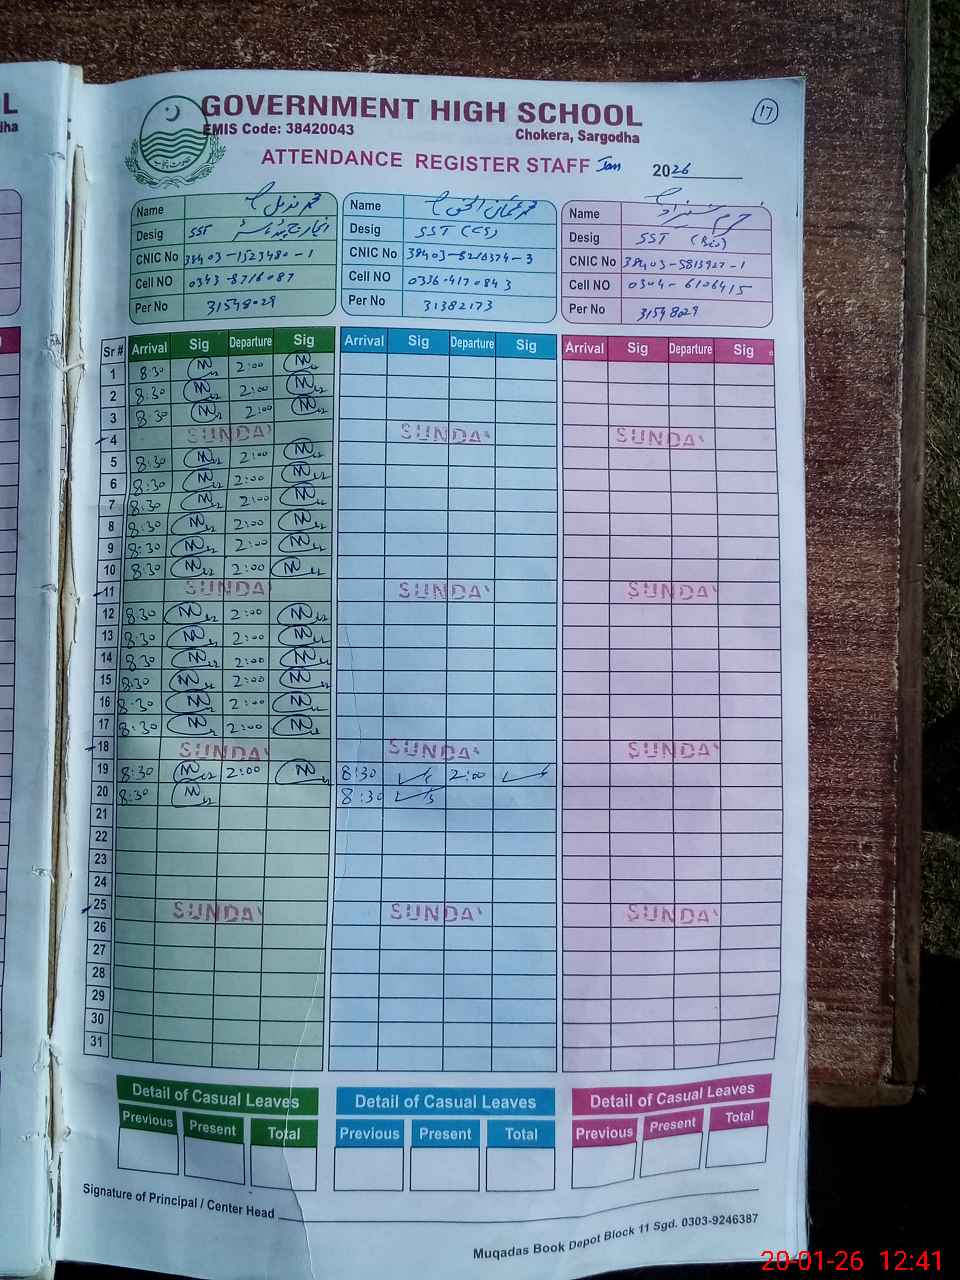 L
ha
GOVERNMENT HIGH SCHOOL
EMIS Code: 38420043
Chokera, Sargodha
17
ATTENDANCE REGISTER STAFF Jan 2026
Name محمد
Name
Name
Desig SST انچارج ہیڈ ماسٹر
Desig SST (CS)
Desig SST (Bio)
CNIC No 38403-1523480-1
CNIC No 38403-8210374-3
CNIC No 38403-5813927-1
Cell NO 0343-8716087
Cell NO 0336-4170843
Cell NO 0304-6106415
Per No 31548029
Per No 31382173
Per No 31548029
Sr # Arrival Sig Departure Sig Arrival Sig Departure Sig Arrival Sig Departure Sig
1 8:30 2:00
2 8:30 2:00
3 8:30 2:00
4 SUNDAY SUNDAY SUNDAY
5 8:30 2:00
6 8:30 2:00
7 8:30 2:00
8 8:30 2:00
9 8:30 2:00
10 8:30 2:00
11 SUNDAY SUNDAY SUNDAY
12 8:30 2:00
13 8:30 2:00
14 8:30 2:00
15 8:30 2:00
16 8:30 2:00
17 8:30 2:00
18 SUNDAY SUNDAY SUNDAY
19 8:30 2:00 8:30 2:00
20 8:30 8:30
21
22
23
24
25 SUNDAY SUNDAY SUNDAY
26
27
28
29
30
31
Detail of Casual Leaves
Previous Present Total
Detail of Casual Leaves
Previous Present Total
Detail of Casual Leaves
Previous Present Total
Signature of Principal / Center Head
Muqadas Book Depot Block 11 Sgd. 0303-9246387
20-01-26 12:41